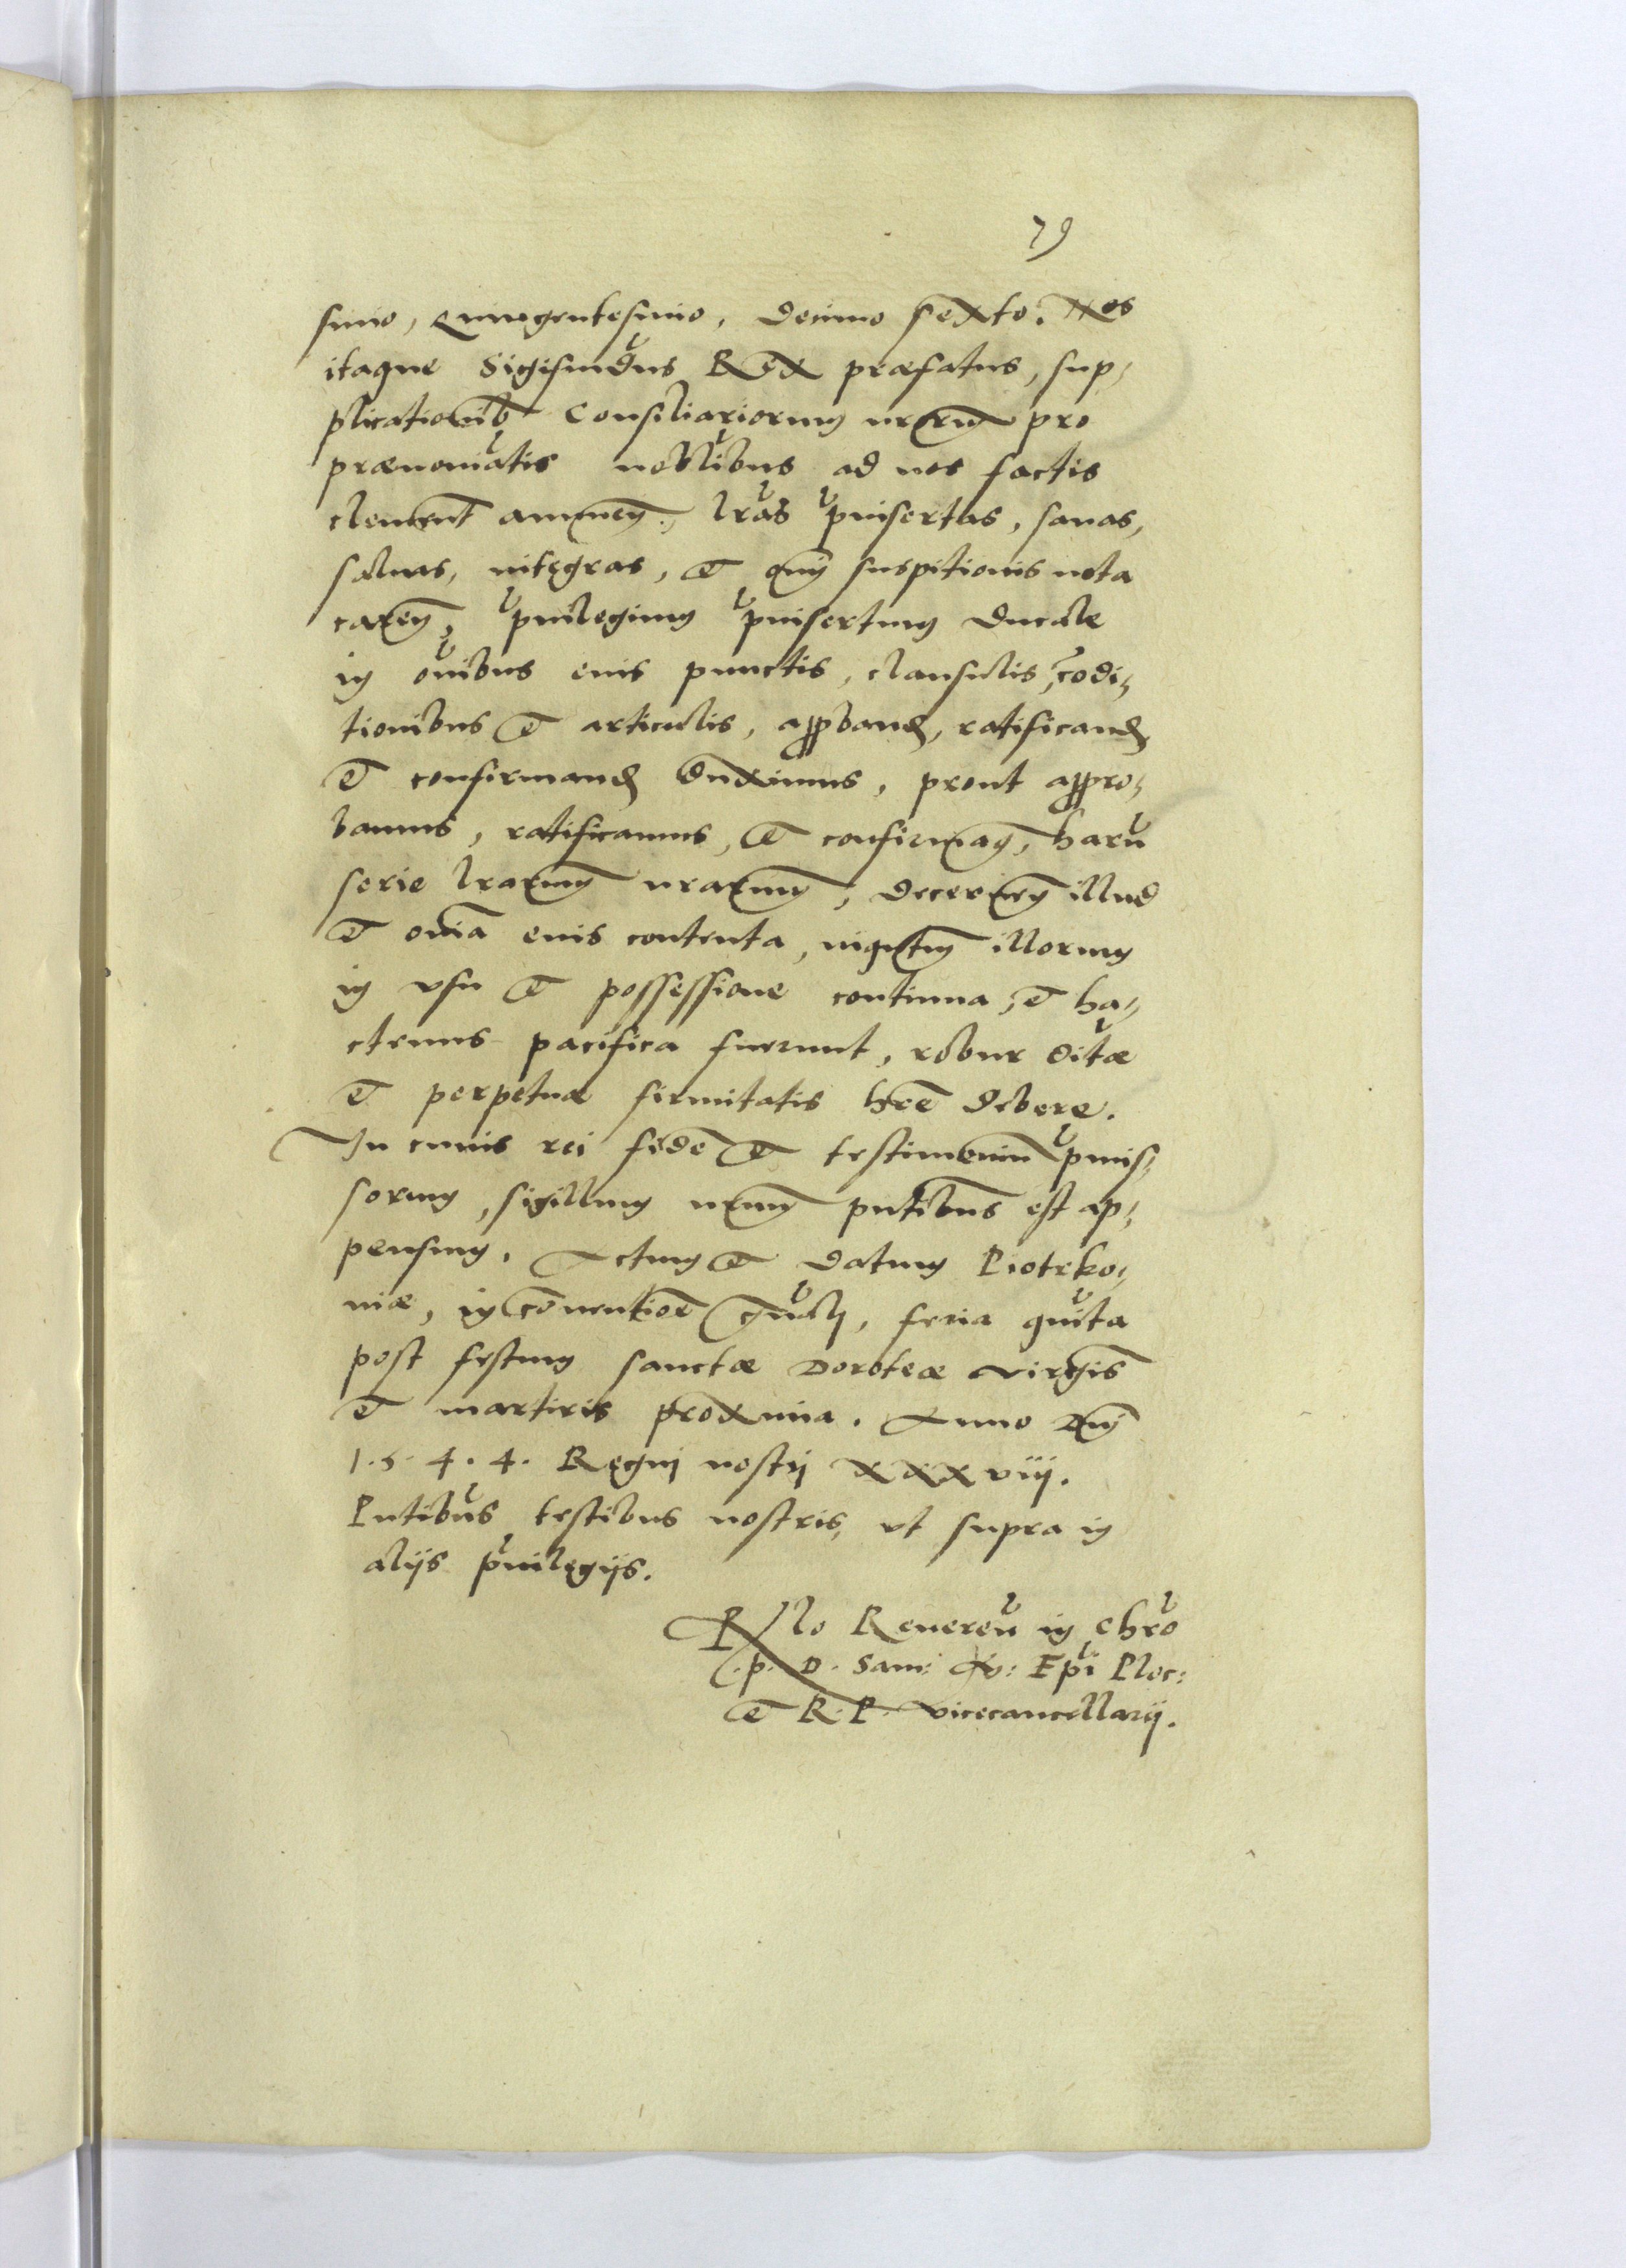 79
simo, Quingentesimo, Decimo sexto. Nos
itaque Sigismdus Rex præfatus, sup-
plicationib Consiliariorum nrorum pro
prænomiatis nobilibus ad nos factis
clement annuen. lras pinsertas, sanas,
saluas, integras, et omni suspitionis nota
caren, priuilegium pinsertum Ducale
in oibus eius punctis, clausulis, codi-
tionibus et articulis, approband, ratificand
et confirmand duximus, prout appro-
bamus, ratificamus, et confirmam, haru
serie lrarum nrarum, decernen illud
et oia eius contenta, inqutum illorum
in vsu et possessione continua, et ha-
ctenus pacifica fuerunt, robur debitæ
et perpetuæ firmitatis hre debere.
In cuius rei fide et testimoniu pmis-
sorum, sigillum nrum pntibus est ap-
pensum. Actum et datum Piotrko-
uiæ, in conuentione gnali, feria quita
post festum sanctæ Doroteæ virginis
et martiris proxima. Anno Dni
1.5.4.4. Regni nostri xxxviij.
Pntibus testibus nostris, vt supra in
alijs priuilegijs.
Rlo Reueren in Chro
.p. D. Sam: Epi Ploc:
et R. P. vicecancellarij.